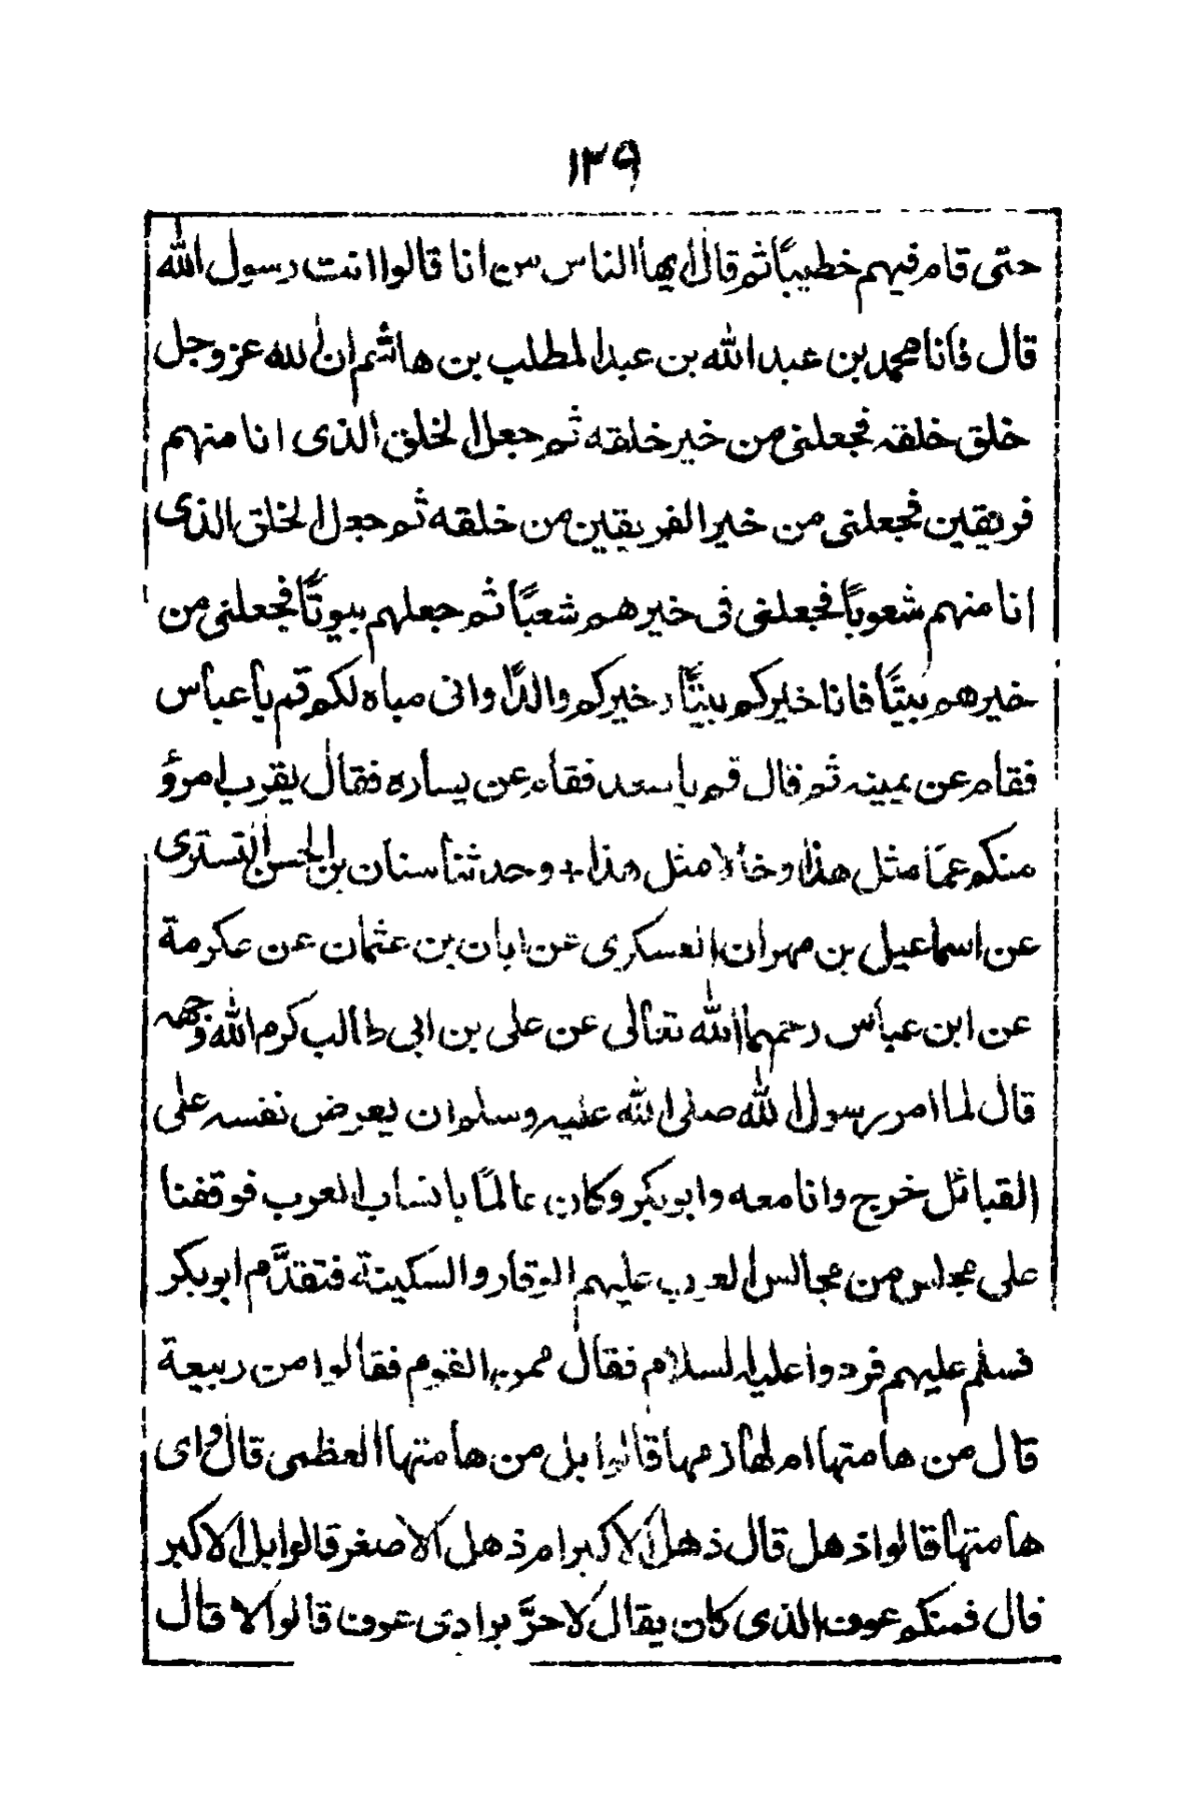 ١٣٩
حتى قام فيهم خطيبًا ثم قال ايها الناس من انا قالوا انت رسول الله
قال فانا محمد بن عبد الله بن عبد المطلب بن هاشم ان الله عز وجل
خلق خلقه فجعلنى من خير خلقه ثم جعل الخلق الذى انا منهم
فريقين فجعلنى من خير الفريقين من خلقه ثم جعل الخلق الذى
انا منهم شعوبًا فجعلنى فى خيرهم شعبًا ثم جعلهم بيوتًا فجعلنى من
خيرهم بيتًا فانا خيركم بيتًا وخيركم والدًا وانى مباه لكم قم يا عباس
فقام عن يمينه ثم قال قم يا سعد فقام عن يساره فقال يقرب امرؤ
منكم عمًا مثل هذا وخالا مثل هذا + وحدثنا سنان بن الحسن التسترى
عن اسماعيل بن مهران العسكرى عن ابان بن عثمان عن عكرمة
عن ابن عباس رحمهما الله تعالى عن على بن ابى طالب كرم الله وجهه
قال لما امر رسول الله صلى الله عليه وسلم ان يعرض نفسه على
القبائل خرج وانا معه وابو بكر وكان عالمًا بانساب العرب فوقفنا
على مجلس من مجالس العرب عليهم الوقار والسكينة فتقدَّم ابو بكر
فسلم عليهم فردوا عليه السلام فقال ممن القوم فقالوا من ربيعة
قال من هامتها ام لهازمها قالوا بل من هامتها العظمى قال واى
هامتها قالوا ذهل قال ذهل الاكبر ام ذهل الاصغر قالوا بل الاكبر
قال فمنكم عوف الذى كان يقال لا حرَّ بوادى عوف قالوا لا قال